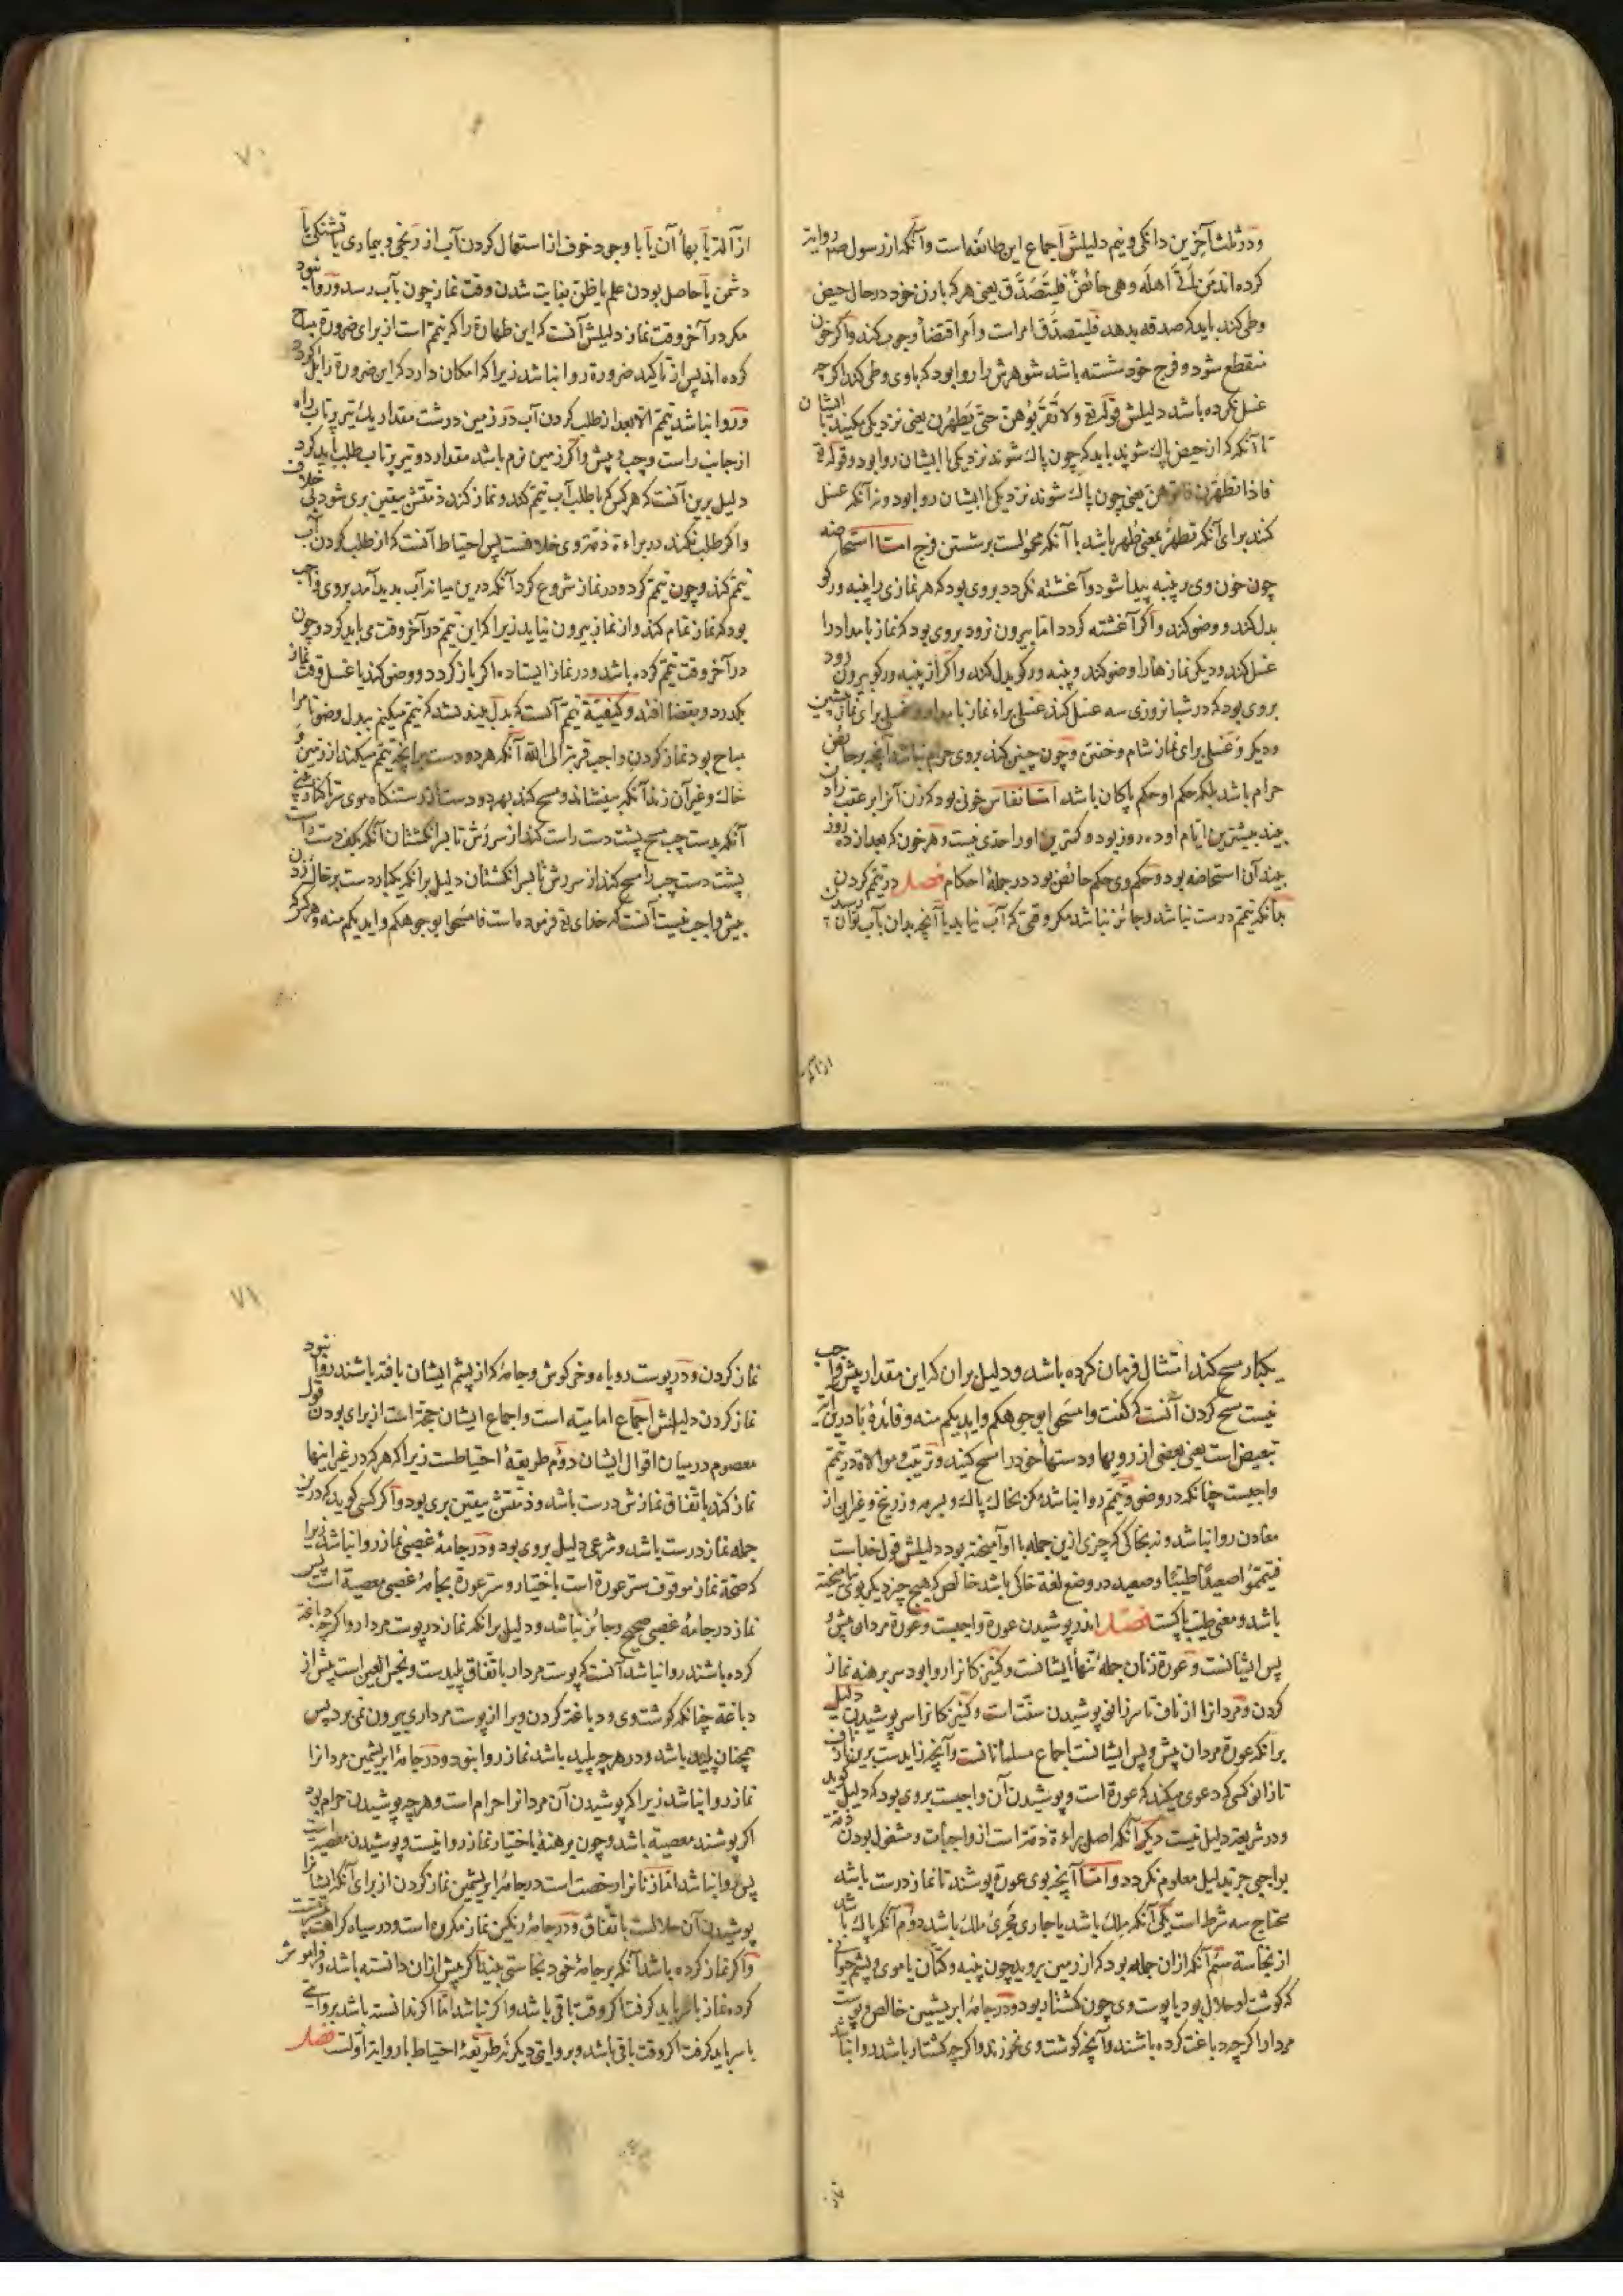 ودر ثلث آخرین دانکی و نیم دلیلش اجماع این طائفه است وآنکه از رسول صم روایة
کرده اند من اتی اهله وهی حائض فلیتصدق یعنی هر که با زن خود در حال حیض
وطی کند باید که صدقه بدهد فلیتصدق امراست وامر اقتضاء وجوب کند واکر خون
منقطع شود وفرج خود شسته باشد شوهرش را روا بود که باوی وطی کند اکرچه
غسل نکرده باشد دلیلش قوله تع ولا تقربوهن حتی یطهرن یعنی نزدیکی مکنید با ایشان
تا آنکه که از حیض پاک شوند باید که چون پاک شوند نزدیکی با ایشان روا بود وقوله تع
فاذا تطهرن فاتوهن یعنی چون پاک شوند نزدیکی با ایشان روا بود ونه آنکه غسل
کنند برای آنکه تطهر بمعنی طهر باشد یا آنکه محمولست برشستن فرج اما استحاضه
چون خون وی بر پنبه پیدا شود وآغشته نکردد بروی بود که هر نمازی را پنبه ورکو
بدل کند و وضو کند واکر آغشته کردد اما بیرون نرود بروی بود که نماز بامداد را
غسل کند ودیکر نمازها را وضو کند وپنبه ورکو بدل کند واکر از پنبه ورکو بیرون رود
بروی بود که در شبانروزی سه غسل کند غسلی براء نماز بامداد وغسلی برای نماز پیشین
ودیکر وغسلی برای نماز شام وخفتن وچون چنین کند بروی حرام نباشد آنچه بر حائض
حرام باشد بلکه حکم او حکم پاکان باشد اما نفاس خونی بود که زن آنرا بر عقب زادن
بیند بیشترین ایام او ده روز بود وکمترین او را حدی نیست وهر خون که بعد از ده روز
بیند آن استحاضه بود وحکم وی حکم حائض بود در جملهٔ احکام فصل در تیمم کردن
بدانکه تیمم درست نباشد وجائز نباشد مکر وقتی که آب نیابد یا آنچه بدان بآب توان رسیدن
از آلة
۷۰
از آلة یا بهاء آن یا با وجود خوف از استعمال کردن آب از رنجی وبیماری یا تشنکی یا
دشمن یا حاصل بودن علم یا ظن بفایت شدن وقت نماز چون بآب رسد وروا نبود
مکر در آخر وقت نماز دلیلش آنست که این طهارة را که تیمم است از برای ضرورة مباح
کرده اند پس از تاکید ضرورة روا نباشد زیرا که امکان دارد که این ضرورة زایل کردد
وروا نباشد تیمم الا بعد از طلب کردن آب در زمین درشت مقدار یک تیر پرتاب راه
از جانب راست وچپ وپیش واکر زمین نرم باشد مقدار دو تیر پرتاب طلب باید کرد
دلیل برین آنست که هر کس که با طلب آب تیمم کند ونماز کند ذمتش بیقین بری شود بی خلاف
واکر طلب نکند در براءة ذمة وی خلافست پس احتیاط آنست که از طلب کردن آب
تیمم کند وچون تیمم کرد ودر نماز شروع کرد آنکه درین میانه آب بدید آمد بروی واجب
بود که نماز تمام کند واز نماز بیرون نیاید زیرا که این تیمم در آخر وقت می باید کرد وچون
در آخر وقت تیمم کرده باشد ودر نماز ایستاده اکر باز کردد ووضو کند یا غسل وقت نماز
بکدرد وبقضا افتد وکیفیة تیمم آنست که بدل بیندیشد که تیمم میکنم ببدل وضو تا مرا
مباح بود نماز کردن واجب قربة الی الله آنکه هر دو دست بر آنچه تیمم میکند از زمین و
خاک وغیر آن زند آنکه بیفشاند ومسح کند بهر دو دست از رستنکاه موی سر تا کنار بینی
آنکه بدست چپ مسح پشت دست راست کند از سر رش تا سر انکشتان آنکه بکف دست راست
پشت دست چپ را مسح کند از سر رش تا سر انکشتان دلیل برآنکه یکبار دست بر خاک زدن
بیش واجب نیست آنست که خدای تع فرموده است فامسحوا بوجوهکم وایدیکم منه وهر که
یکبار مسح کند امتثال فرمان کرده باشد ودلیل بران که این مقدار بیش واجب
نیست مسح کردن آنست که کفت وامسحوا بوجوهکم وایدیکم منه وفائدهٔ با درین آیة
تبعیض است یعنی بعضی از رویها ودستهاء خود را مسح کنید وترتیب وموالاة در تیمم
واجبست چنانکه در وضو وتیمم روا نباشد مکر بخاک پاک وبسرمه وزرنیخ وغیر این از
معادن روا نباشد ونه بخاکی که چیزی ازین جمله با او آمیخته بود دلیلش قول خداست
فتیمموا صعیدا طیبا وصعید در وضع لغة خاکی باشد خالص که هیچ چیز دیکر بوی نیامیخته
باشد ومعنی طیب پاکست فصل اندر پوشیدن عورة واجبست وعورة مردان پیش و
پس ایشانست وعورة زنان جملهٔ تنهاء ایشانست وکنیزکانرا روا بود سر برهنه نماز
کردن ومردانرا از ناف تا سر زانو پوشیدن سنت است وکنیزکانرا سر پوشیدن دلیل
برانکه عورة مردان پیش وپس ایشانست اجماع مسلمانانست وآنچه زایدست برین از ناف
تا زانو کسی که دعوی میکند که عورة است وپوشیدن آن واجبست بروی بود که دلیل کوید
ودر شریعة دلیل نیست دیکر آنکه اصل براءة ذمة است از واجبات ومشغول بودن ذمة
بواجبی جز بدلیل معلوم نکردد واما آنچه بوی عورة پوشند تا نماز درست باشد
محتاج سه شرط است یکی آنکه ملک باشد یا جاری مجری ملک باشد دوم آنکه پاک باشد
از نجاسة سئم آنکه ازان جمله بود که از زمین بروید چون پنبه وکتان یا موی وپشم حیوانی
که کوشت او حلال بود یا پوست وی چون کشتار بود ودر جامهٔ ابریشمین خالص وپوست
مردار اکرچه دباغت کرده باشند وآنچه کوشت وی نخورند واکرچه کشتار باشد روا نباشد
۷۱
نماز کردن ودر پوست روباه وخرکوش وجامهٔ که از پشم ایشان بافته باشند روا نبود
نماز کردن دلیلش اجماع امامیه است واجماع ایشان حجة است از برای بودن قول
معصوم در میان اقوال ایشان دوم طریقهٔ احتیاطست زیرا که هر که در غیر اینها
نماز کند باتفاق نمازش درست باشد وذمتش بیقین بری بود واکر کسی کوید که درین
جمله نماز درست باشد وشرعی دلیل بروی بود ودر جامهٔ غصبی نماز روا نباشد زیرا
که صحة نماز موقوف ستر عورة است باختیار وستر عورة بجامهٔ غصبی معصیة است پس
نماز در جامهٔ غصبی صحیح وجائز نباشد ودلیل برانکه نماز در پوست مردار واکرچه دباغة
کرده باشند روا نباشد آنست که پوست مردار باتفاق پلیدست ونجس العین است پیش از
دباغة چنانکه کوشت وی ودباغة کردن ویرا از پوست مرداری بیرون نمی برد پس
همچنان پلید باشد ودر هر چه پلید باشد نماز روا نبود ودر جامهٔ ابریشمین مردانرا
نماز روا نباشد زیرا که پوشیدن آن مردانرا حرام است وهر چه پوشیدن حرام بود
اکر پوشند معصیة باشد وچون برهنه باختیار نماز روا نیست وپوشیدن معصیة است
پس روا نباشد اما زنانرا رخصت است در جامهٔ ابریشمین نماز کردن از برای آنکه ایشانرا
پوشیدن آن حلالست باتفاق ودر جامهٔ رنکین نماز مکروه است ودر سیاه کراهت بیشترست
واکر نماز کرده باشد آنکه بر جامهٔ خود نجاستی بیند اکر پیش ازان دانسته باشد وفراموش
کرده نماز با سر باید کرفت اکر وقت باقی باشد واکر نباشد اما اکر ندانسته باشد بروایتی
با سر باید کرفت اکر وقت باقی باشد وبروایتی دیکر نه طریقهٔ احتیاط با روایة اولست فصل